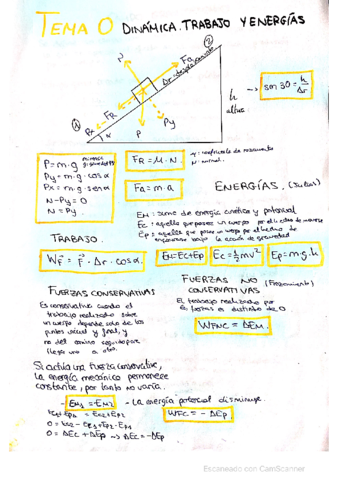 TEMA 0 DINÁMICA. TRABAJO Y ENERGÍAS
②
Fa
Δr desplazamiento
FR
①
Px
α
P
Py
h
altura
→ sen 30 = h/Δr
P = m·g
Py = m·g·cos α
Px = m·g·sen α
N - Py = 0
N = Py
FR = M·N
M: coeficiente de rozamiento
N: normal
Fa = m·a
ENERGÍAS. (Julios)
EM: suma de energía cinética y potencial
Ec: aquella que posee un cuerpo por el hecho de moverse
Ep: aquella que posee un cuerpo por el hecho de
encontrarse bajo la acción de gravedad
TRABAJO
WF = F · Δr · cos α.
EM = Ec + Ep
Ec = 1/2 mv²
Ep = m·g·h
FUERZAS CONSERVATIVAS
Es conservativa cuando el
trabajo realizado sobre
un cuerpo depende solo de los
puntos inicial y final, y
no del camino seguido para
llegar uno a otro.
FUERZAS NO (Rozamiento)
CONSERVATIVAS
El trabajo realizado por
las fuerzas es distinto de 0.
WFNC = ΔEM.
Si actúa una fuerza conservativa,
la energía mecánica permanece
constante, por tanto no varía.
- EM1 = EM2
- La energía potencial disminuye.
Ec1 + Ep1 = Ec2 + Ep2
WFC = - ΔEp
0 = ΔEc + ΔEp → ΔEc = - ΔEp
Escaneado con CamScanner